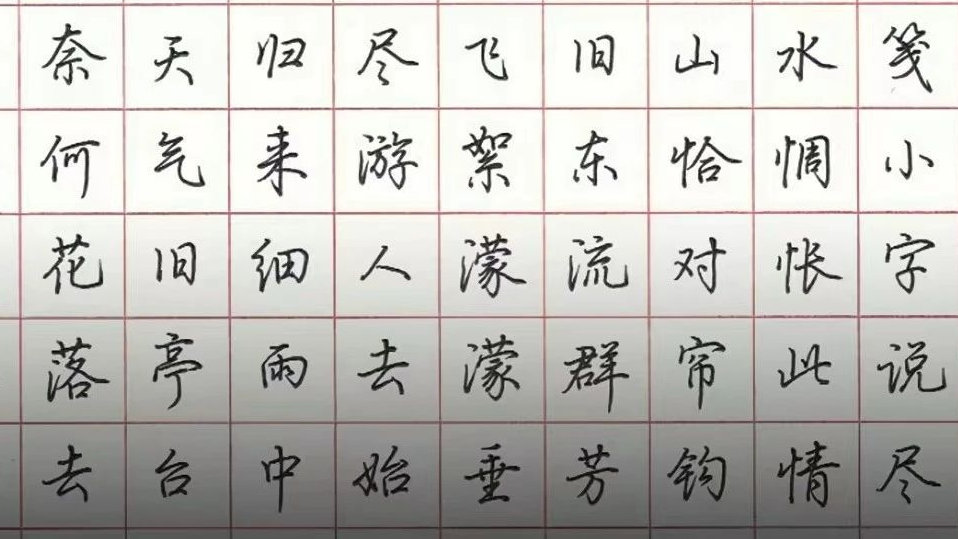 笺小字说尽
水惆怅此情
山恰对帘钩
旧东流群芳
飞絮濛濛垂
尽游人去始
归来细雨中
天气旧亭台
奈何花落去